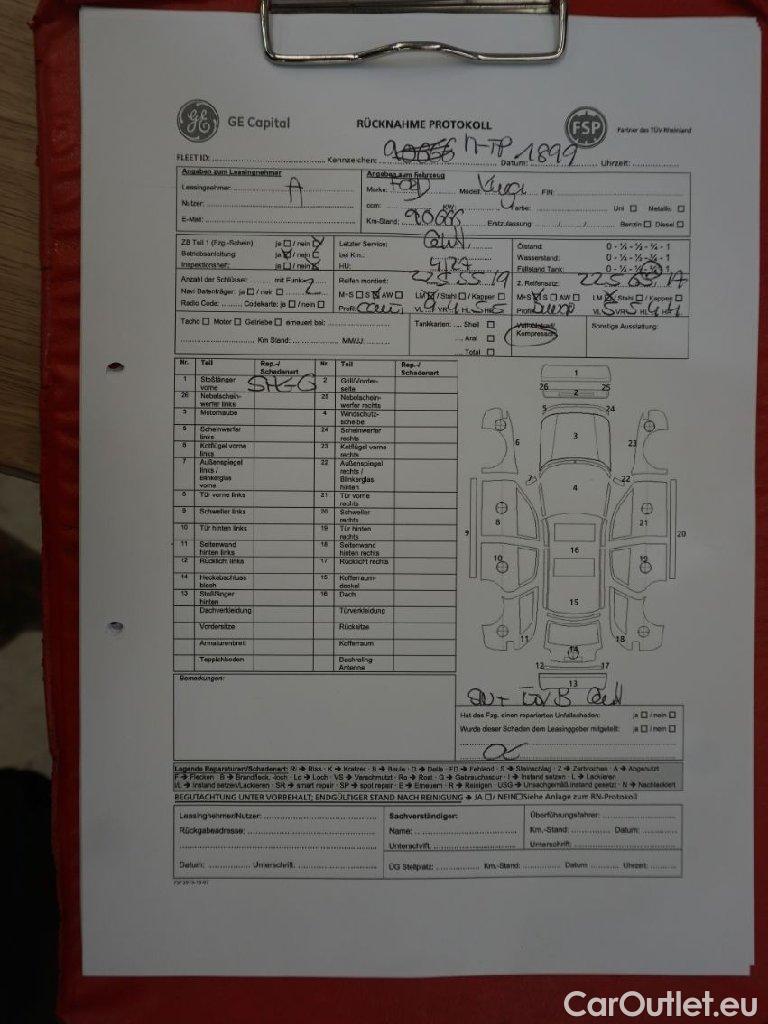 GE GE Capital RÜCKNAHME PROTOKOLL FSP Partner des TÜV Rheinland
FLEET ID: Kennzeichen: M-TP 1899 Datum: Uhrzeit:
Angaben zum Leasingnehmer Angaben zum Fahrzeug
Leasingnehmer: A Marke: FORD Model: Kuga FIN:
Nutzer: ccm: KW: Farbe: Uni Metallic
E-Mail: Km-Stand: Erstzulassung / / Benzin Diesel
ZB Teil 1 (Fzg.-Schein) ja / nein Letzter Service: Ölstand: 0 - ¼ - ½ - ¾ - 1
Betriebsanleitung: ja / nein bei Km.: Wasserstand: 0 - ¼ - ½ - ¾ - 1
Inspektionsheft: ja / nein HU: 4/27 Füllstand Tank: 0 - ¼ - ½ - ¾ - 1
Anzahl der Schlüssel: mit Funk: 2 Reifen montiert: 225 55 19 2. Reifensatz: 225 65 17
Navi Datenträger: ja / nein M+S S AW LM / Stahl / Kappen M+S S AW LM / Stahl / Kappen
Radio Code: Codekarte: ja / nein Profil: VL VR HL HR Profil: VL VR HL HR
Tacho Motor Getriebe erneuert bei: Tankkarten: Shell Sonstige Ausstattung:
Km Stand: MM/JJ: Aral Kompressor
Total
Nr. Teil Rep.-/ Schadenart Nr. Teil Rep.-/ Schadenart
1 Stoßfänger vorne 2 Grill/Vorderseite
26 Nebelscheinwerfer links 25 Nebelscheinwerfer rechts
3 Motorhaube 4 Windschutzscheibe
5 Scheinwerfer links 24 Scheinwerfer rechts
6 Kotflügel vorne links 23 Kotflügel vorne rechts
7 Außenspiegel links / Blinkerglas vorne 22 Außenspiegel rechts / Blinkerglas hinten
8 Tür vorne links 21 Tür vorne rechts
9 Schweller links 20 Schweller rechts
10 Tür hinten links 19 Tür hinten rechts
11 Seitenwand hinten links 18 Seitenwand hinten rechts
12 Rücklicht links 17 Rücklicht rechts
14 Heckabschlussblech 15 Kofferraumdeckel
13 Stoßfänger hinten 16 Dach
Dachverkleidung Türverkleidung
Vordersitze Rücksitze
Armaturenbrett Kofferraum
Teppichboden Dachreling Antenne
1
26 25
2
5 24
6 3 23
7 22
4
8 21
9 20
16
10 19
15
11 18
14
12 17
13
Bemerkungen:
Hat das Fzg. einen reparierten Unfallschaden: ja / nein
Wurde dieser Schaden dem Leasinggeber mitgeteilt: ja / nein
Legende Reparaturen/Schadenart: RI → Riss · K → Kratzer · B → Beule · D → Delle · FD → Fehlend · S → Steinschlag · Z → Zerbrochen · A → Abgenutzt
F → Flecken · B → Brandfleck, -loch · Lo → Loch · VS → Verschmutzt · Ro → Rost · G → Gebrauchsspur · I → Instand setzen · L → Lackieren
I/L → Instand setzen/Lackieren · SR → smart repair · SP → spot repair · E → Erneuern · R → Reinigen · USG → Unsachgemäß instand gesetzt · N → Nachlackiert
BEGUTACHTUNG UNTER VORBEHALT; ENDGÜLTIGER STAND NACH REINIGUNG → JA / NEIN Siehe Anlage zum RN-Protokoll
Leasingnehmer/Nutzer: Sachverständiger: Überführungsfahrer:
Rückgabeadresse: Name: Km.-Stand: Datum:
Unterschrift: Unterschrift:
Datum: Unterschrift: ÜG Stellplatz: Km.-Stand: Datum Uhrzeit:
CarOutlet.eu